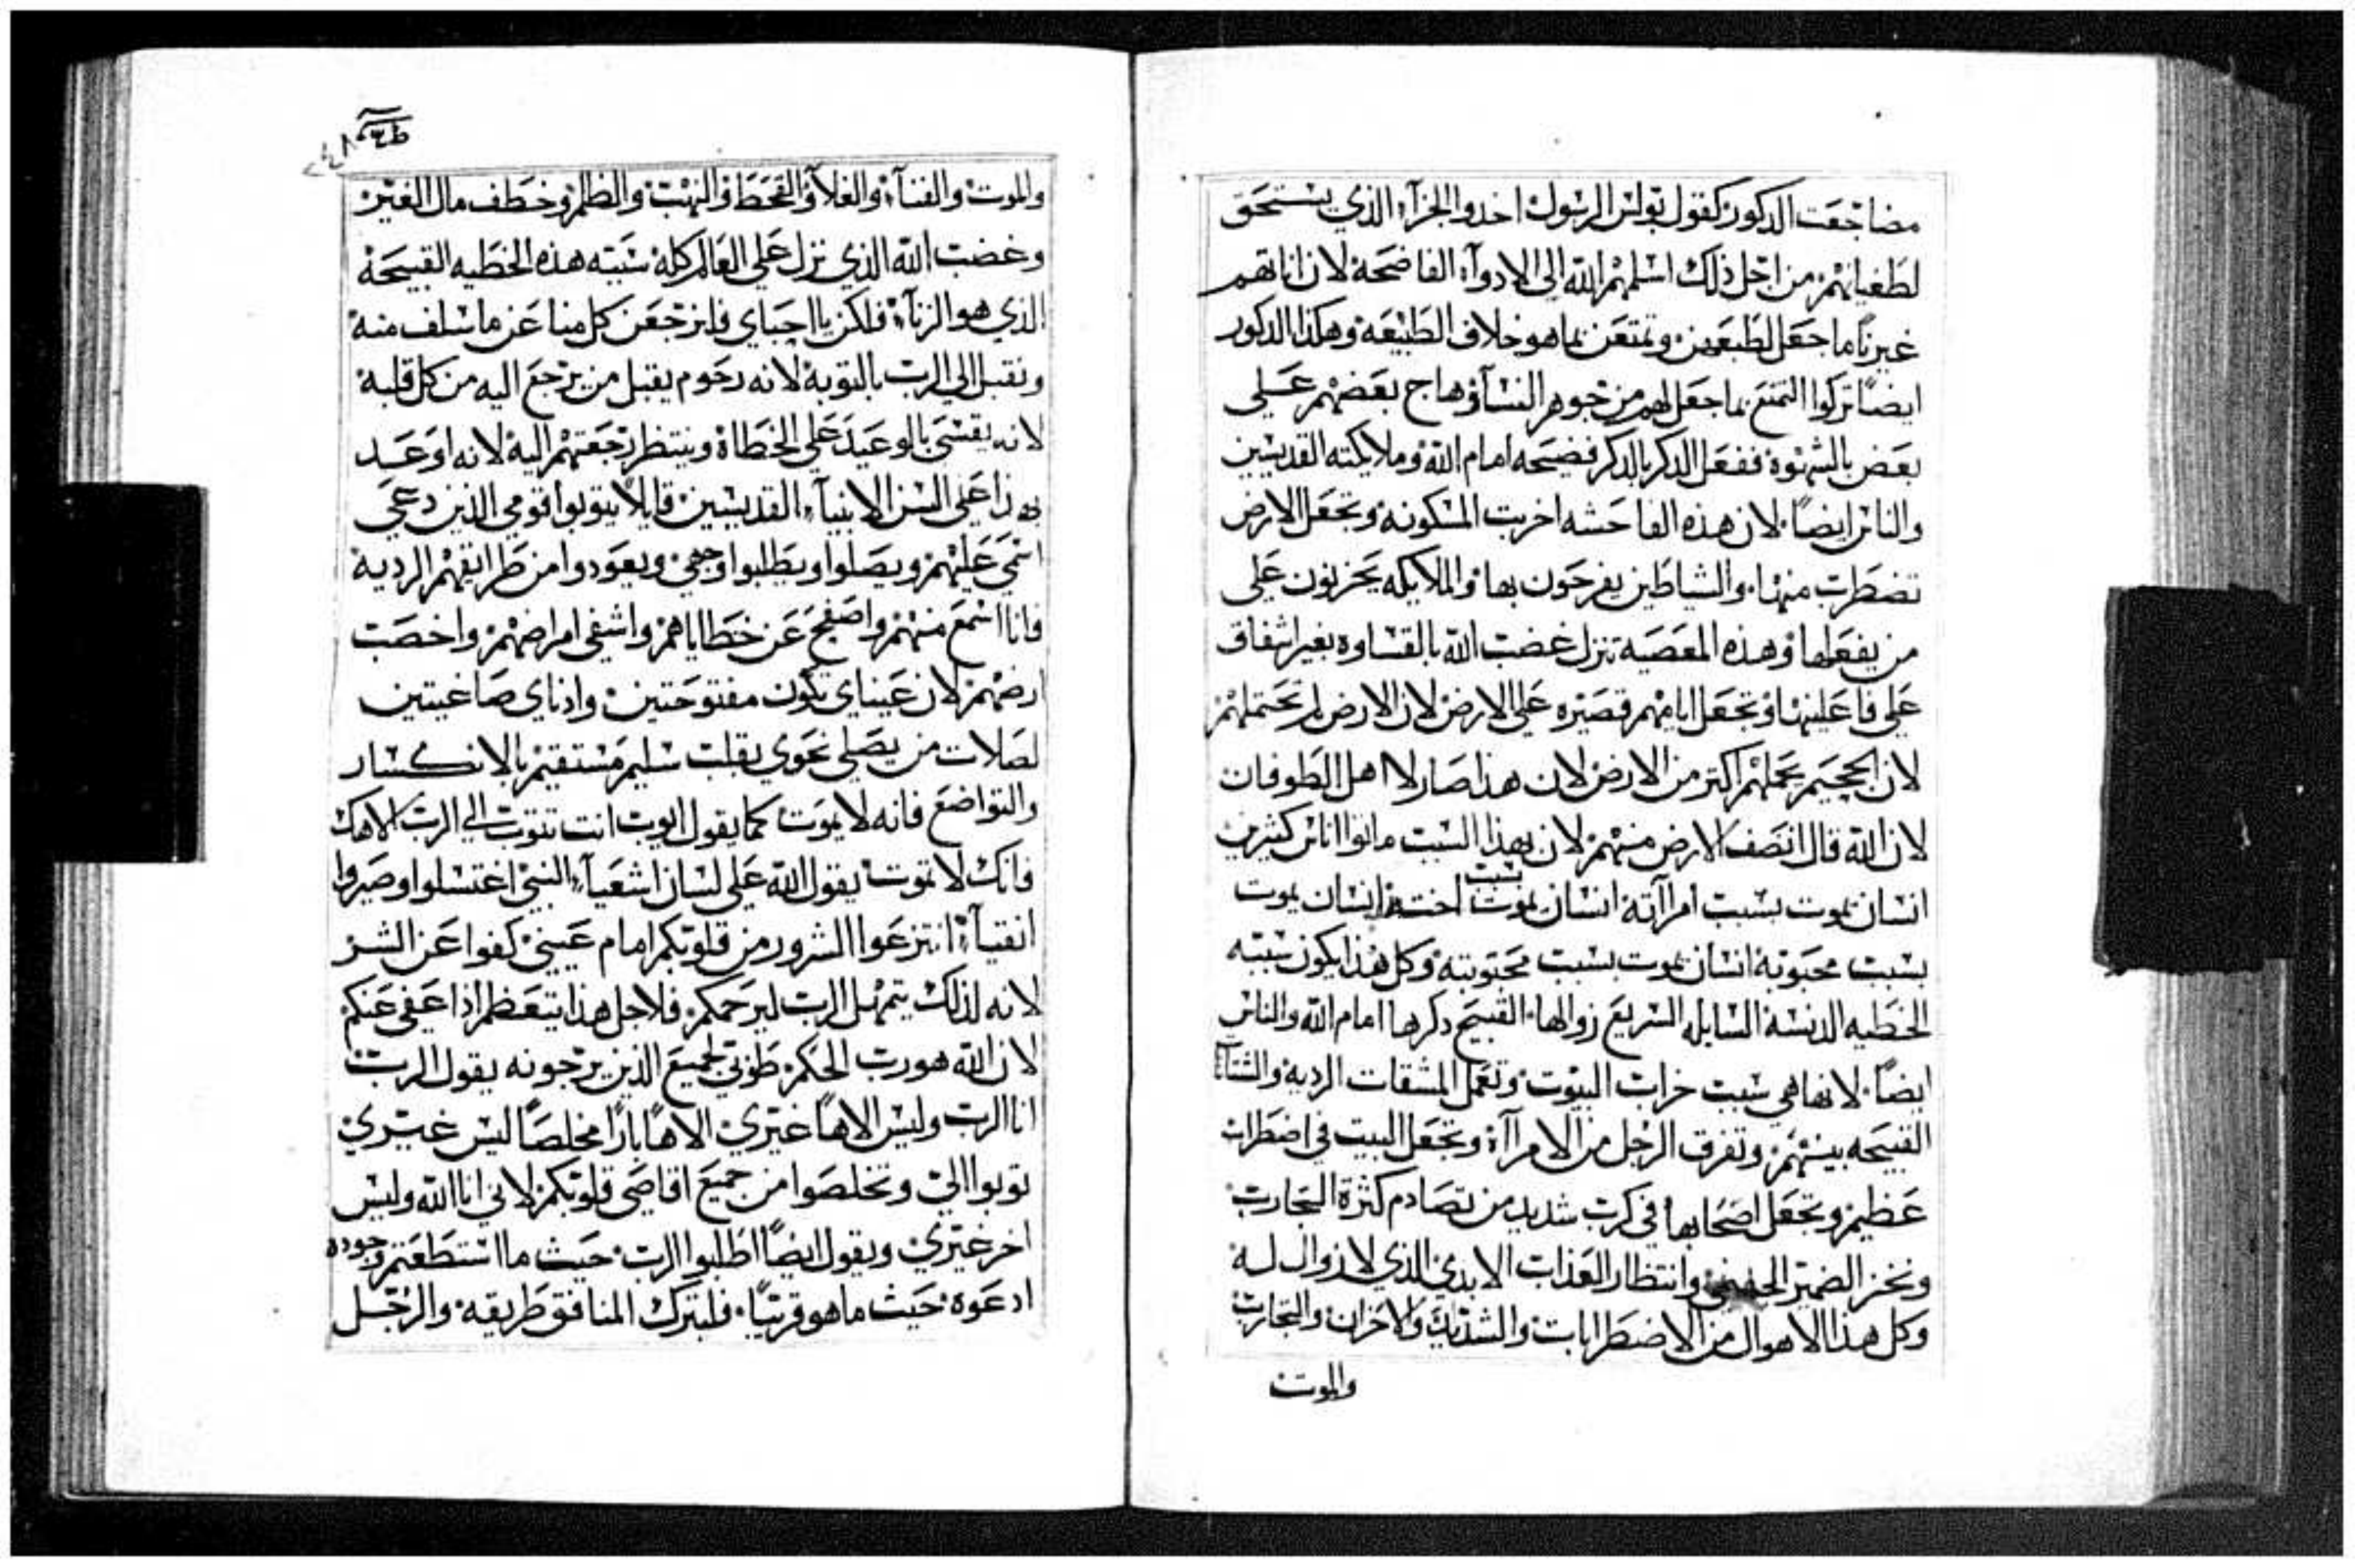 مضاجعت الدكور كقول بولس الرسول اخدوا الجزآء الذي يستحق
لطغيانهم من اجل ذلك اسلمهم الله الى الادوآء الفاضحة لان اناثهم
غيرنا ما جعل لطبعهن وتمتعن بما هو خلاف الطبيعه وهكذا الدكور
ايضًا تركوا التمتع بما جعل لهم من جوهر النسآء وهاج بعضهم علي
بعض بالشهوة ففعل الدكر بالدكر فضيحه امام الله وملايكته القديسين
والناس ايضًا لان هذه الفاحشه اخربت المسكونه وتجعل الارض
تضطرب منها والشياطين يفرحون بها والملايكه يحزنون علي
من يفعلها وهذه المعصيه تنزل غضب الله بالقساوه بغير اشفاق
علي فاعلينها وتجعل ايامهم قصيره علي الارض لان الارض لم تحتملهم
لان الجحيم يحملهم اكتر من الارض لان هذا صار لااهل الطوفان
لان الله قال انصف الارض منهم لان بهذا السبب ماتوا اناس كثيرين
انسان يموت بسبب امرآته انسان يموت بسبب اخته انسان يموت
بسبب محبوبه انسان يموت بسبب محبوبته وكل هذا يكون سببه
الخطيه الدنسة السايله السريع زوالها القبيح دكرها امام الله والناس
ايضًا لانها هي سبب خراب البيوت وتعمل المشقات الرديه
القبيحه بينهم وتفرق الرجل من الامرآة وتجعل البيت في اضطراب
عظيم وتجعل اصحابها في كرب شديد من تصادم كثرة التجارب
ونخز الضمير وانتظار العذاب الابدي الذي لا زوال له
وكل هذا الاهوال من الاضطرابات والشدايد والاحزان والتجارب
والموت
٢٤٨
والموت والفنآء والغلآء والقحط والنهب والظلم وخطف مال الغير
وغضب الله الذي نزل علي العالم كله سببه هذه الخطيه القبيحة
الذي هو الزنآء فلكن يااحباي فليرجعن كل منا عن ما سلف منه
ونقبل الي الرب بالتوبة لانه رحوم يقبل من يرجع اليه من كل قلبه
لانه يقسي بالوعيد علي الخطاة وينتظر رجعتهم اليه لانه اوعد
بهذا علي السن الانبيآء القديسين قايلًا يتوبوا قومي الذين دعي
اسمي عليهم ويصلوا ويطلبوا وجهي ويعودوا من طرايقهم الرديه
فانا اسمع منهم واصفح عن خطاياهم واشفي امراضهم واخصب
ارضهم لان عيناي تكون مفتوحتين واداناي صاغيتين
لصلات من يصلي نحوي بقلب سليم مستقيم بالانكسار
والتواضع فانه لا يموت كما يقول ايوب انت تتوب الي الرب الاهك
فانك لا تموت يقول الله علي لسان اشعيآء النبي اغتسلوا وصيروا
انقيآء انتزعوا الشرور من قلوبكم امام عيني كفوا عن الشر
لانه لذلك يتمهل الرب ليرحمكم فلاجل هذا يتعظم اذا عفي عنكم
لان الله هو رب الحكم طوبي لجميع الذين يرجونه يقول الرب
انا الرب وليس الاهًا غيري الاهًا بارًا مخلصًا ليس غيري
توبوا الي وتخلصوا من جميع اقاصي قلوبكم لاني انا الله وليس
اخر غيري ويقول ايضًا اطلبوا الرب حيث ما استطعتم وجوده
ادعوه حيث ما هو قريبًا فليترك المنافق طريقه والرجل